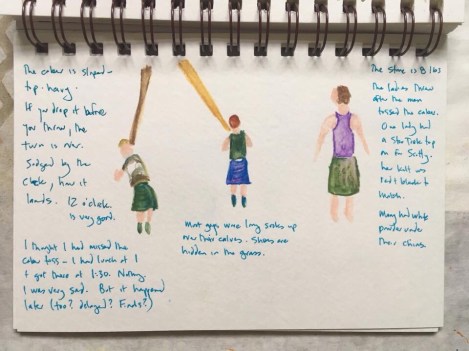 The caber is sloped -
top-heavy.
If you drop it before
you throw, the
turn is over.
Judged by the
Clock, how it
lands. 12 o'clock
is very good.
I thought I had missed the
caber toss - I had lunch at 1
+ got there at 1:30. Nothing.
I was very sad. But it happened
later (too? delayed? Finals?)
Most guys wore long socks up
over their calves. Shoes are
hidden in the grass.
The stone is 8 lbs
The ladies threw
after the men
tossed the caber.
One lady had
a Star Trek top
on for Scotty.
her kilt was
red + black to
match.
Many had white
powder under
their chins.